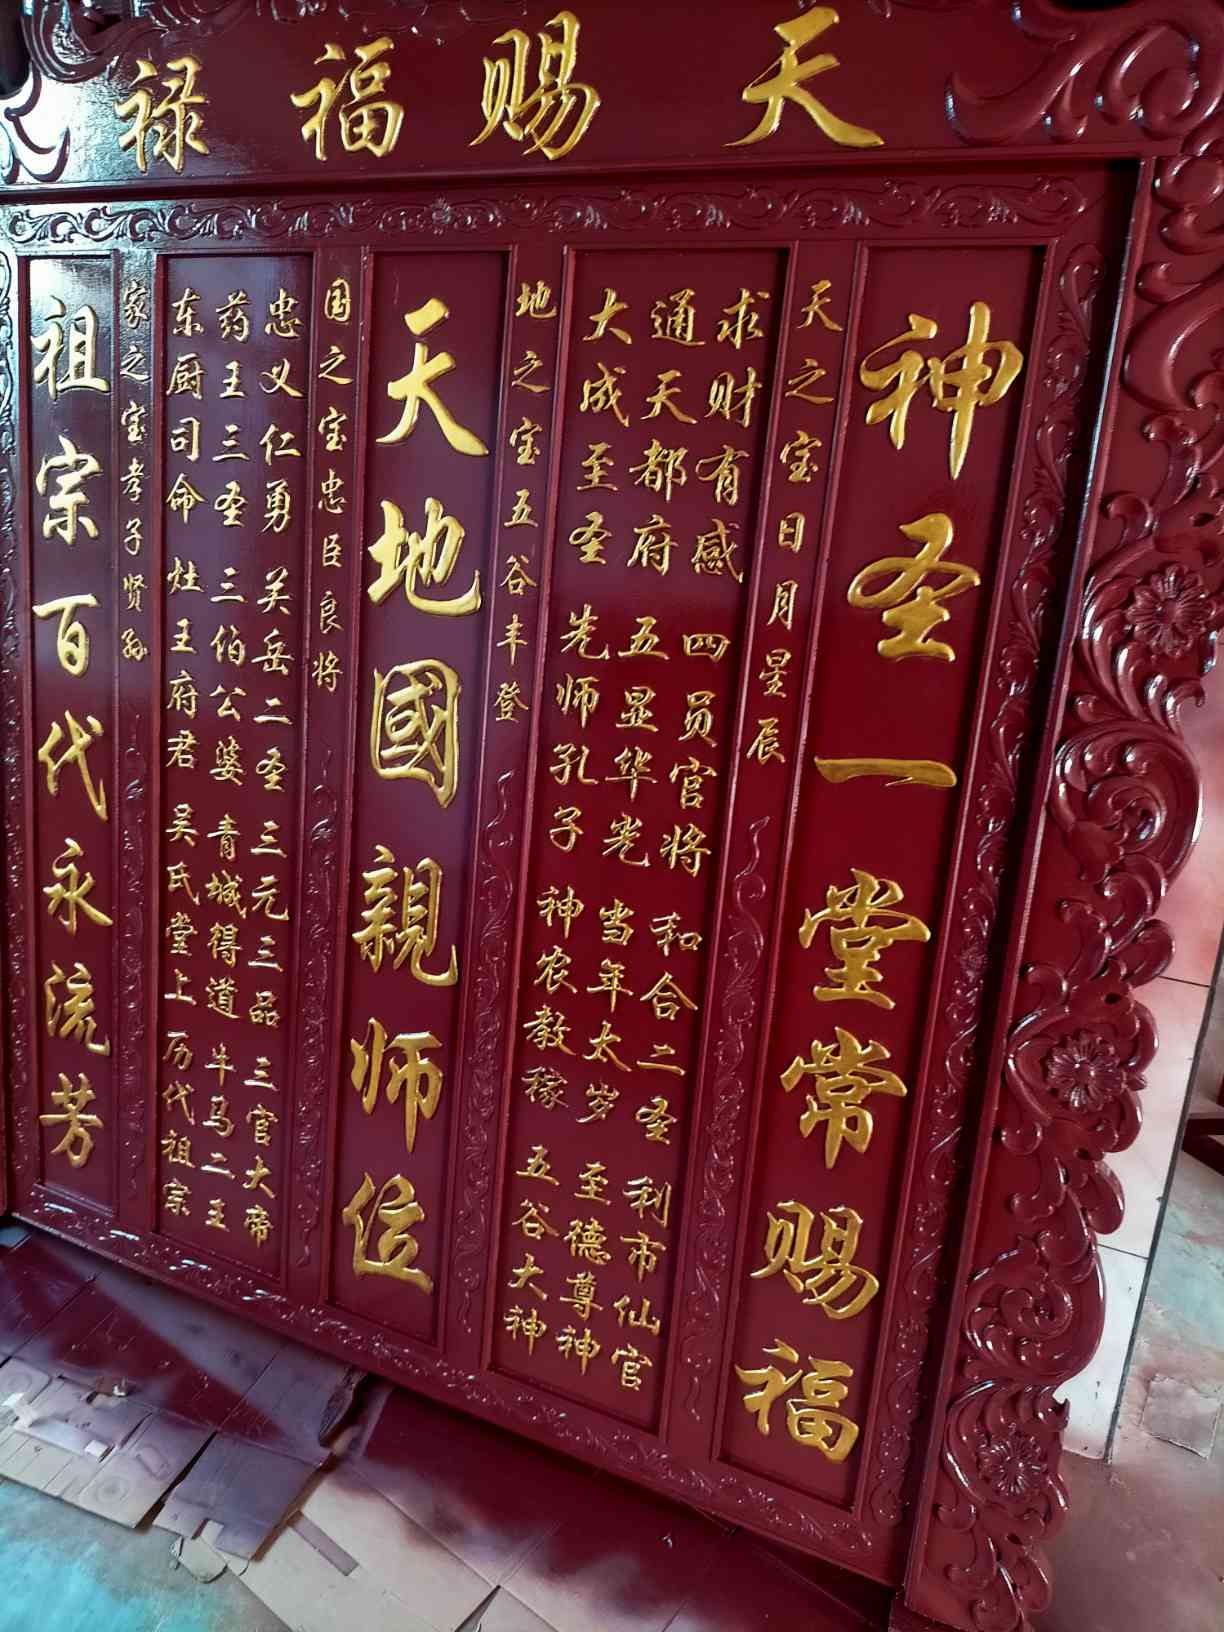 天赐福禄
神圣一堂常赐福
天之宝日月星辰
求财有感 四员官将 和合二圣 利市仙官
通天都府 五显华光 当年太岁 至德尊神
大成至圣 先师孔子 神农教稼 五谷大神
地之宝五谷丰登
天地國親师位
国之宝忠臣良将
忠义仁勇 关岳二圣 三元三品 三官大帝
药王三圣 三伯公婆 青城得道 牛马二王
东厨司命 灶王府君 吴氏堂上 历代祖宗
家之宝孝子贤孙
祖宗百代永流芳